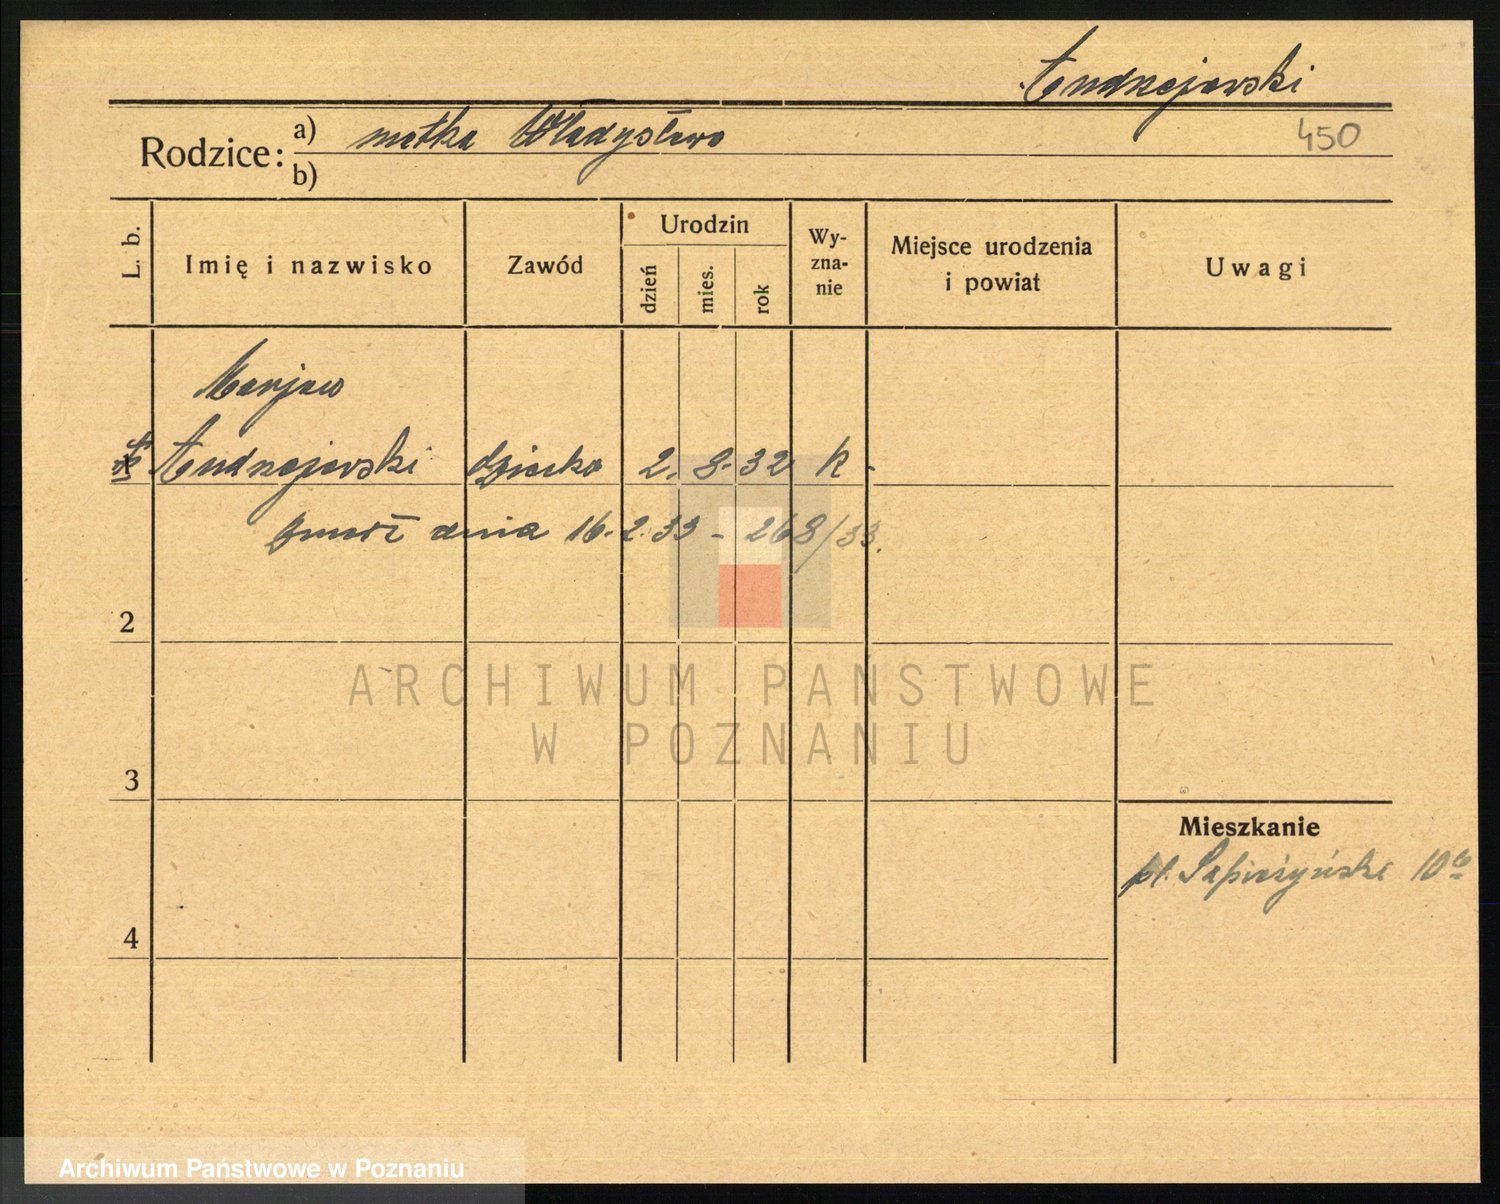 Andrzejewski
Rodzice: a) matka Władysława
450
b)
L. b.
Imię i nazwisko
Zawód
Urodzin
dzień
mies.
rok
Wy-
zna-
nie
Miejsce urodzenia
i powiat
Uwagi
Marjan
Andrzejewski dziecko 2. 8. 32 k.
zmarł dnia 16.2.33 - 268/33.
2
3
4
Mieszkanie
pl. Sapieżyński 10b
ARCHIWUM PAŃSTWOWE
W POZNANIU
Archiwum Państwowe w Poznaniu